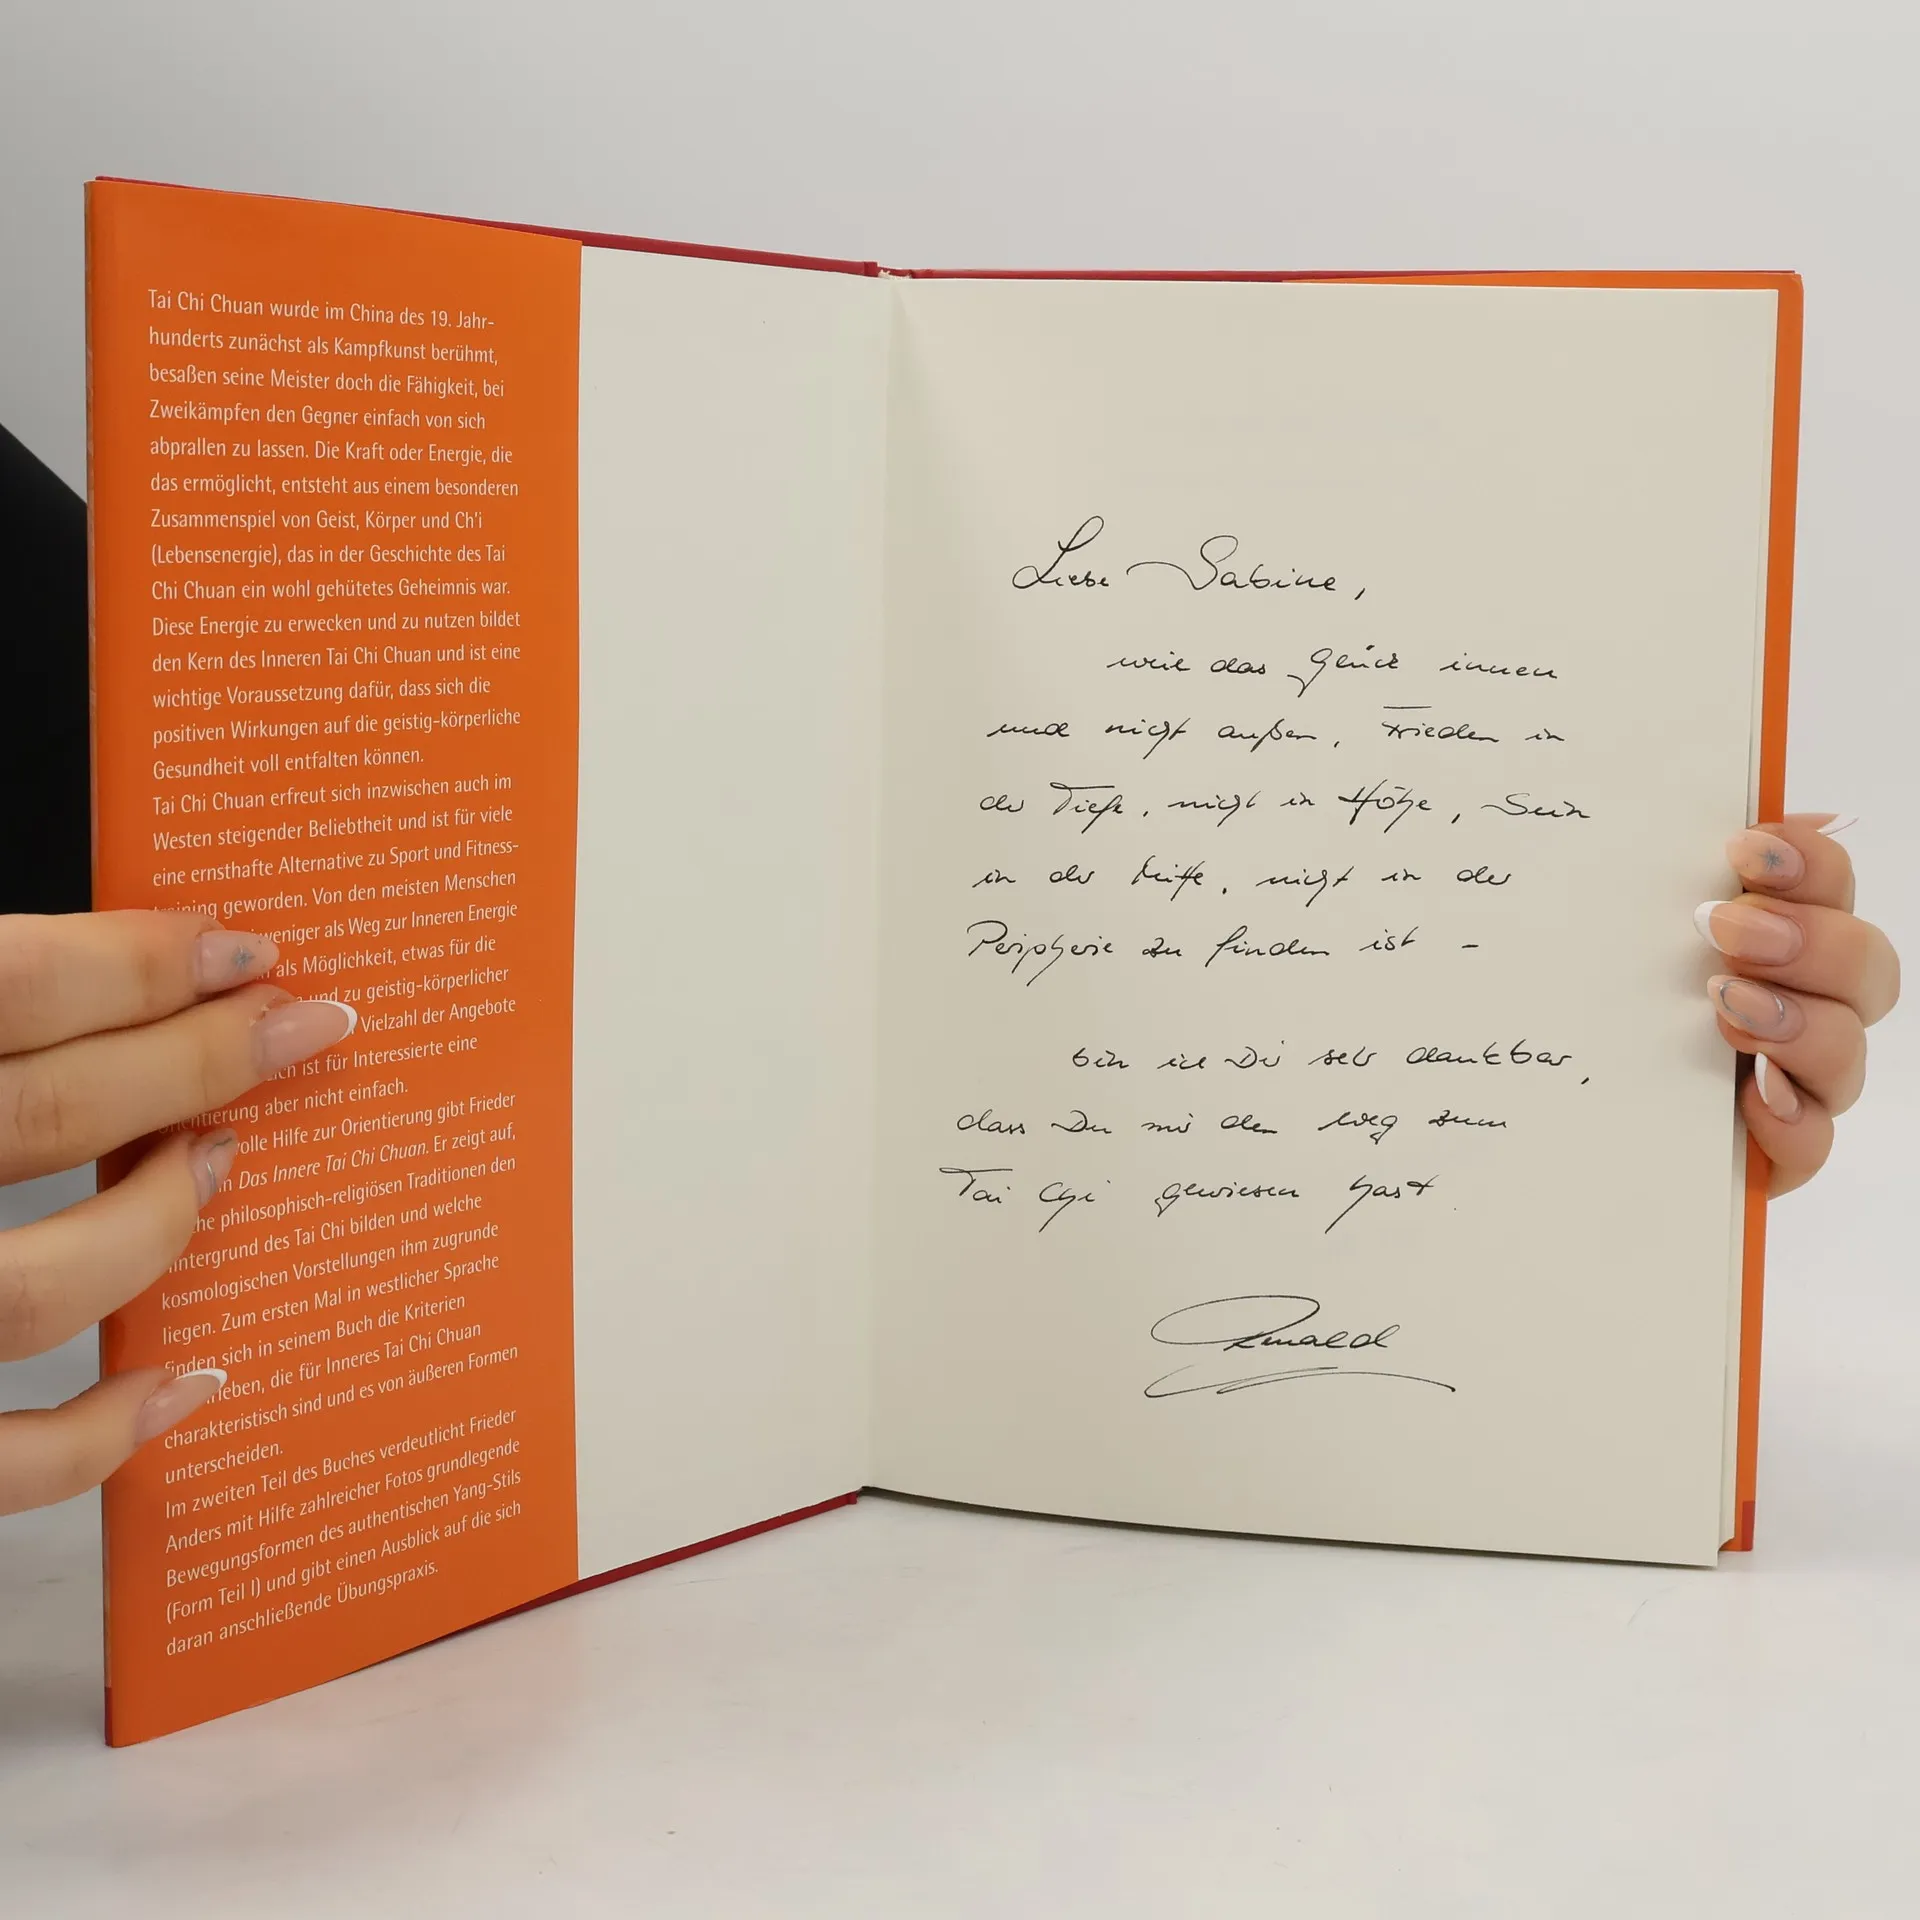 Tai Chi Chuan wurde im China des 19. Jahr-
hunderts zunächst als Kampfkunst berühmt,
besaßen seine Meister doch die Fähigkeit, bei
Zweikämpfen den Gegner einfach von sich
abprallen zu lassen. Die Kraft oder Energie, die
das ermöglicht, entsteht aus einem besonderen
Zusammenspiel von Geist, Körper und Ch'i
(Lebensenergie), das in der Geschichte des Tai
Chi Chuan ein wohl gehütetes Geheimnis war.
Diese Energie zu erwecken und zu nutzen bildet
den Kern des Inneren Tai Chi Chuan und ist eine
wichtige Voraussetzung dafür, dass sich die
positiven Wirkungen auf die geistig-körperliche
Gesundheit voll entfalten können.
Tai Chi Chuan erfreut sich inzwischen auch im
Westen steigender Beliebtheit und ist für viele
eine ernsthafte Alternative zu Sport und Fitness-
training geworden. Von den meisten Menschen
weniger als Weg zur Inneren Energie
als Möglichkeit, etwas für die
und zu geistig-körperlicher
Vielzahl der Angebote
ist für Interessierte eine
Orientierung aber nicht einfach.
volle Hilfe zur Orientierung gibt Frieder
Das Innere Tai Chi Chuan. Er zeigt auf,
philosophisch-religiösen Traditionen den
Hintergrund des Tai Chi bilden und welche
kosmologischen Vorstellungen ihm zugrunde
liegen. Zum ersten Mal in westlicher Sprache
finden sich in seinem Buch die Kriterien
die für Inneres Tai Chi Chuan
charakteristisch sind und es von äußeren Formen
unterscheiden.
Im zweiten Teil des Buches verdeutlicht Frieder
Anders mit Hilfe zahlreicher Fotos grundlegende
Bewegungsformen des authentischen Yang-Stils
(Form Teil I) und gibt einen Ausblick auf die sich
daran anschließende Übungspraxis.
Liebe Sabine,
weil das Glück innen
und nicht außen, Frieden in
der Tiefe, nicht in Höhe, Sein
in der Mitte, nicht in der
Peripherie zu finden ist –
bin ich Dir sehr dankbar,
dass Du mir den Weg zum
Tai Chi gewiesen hast.